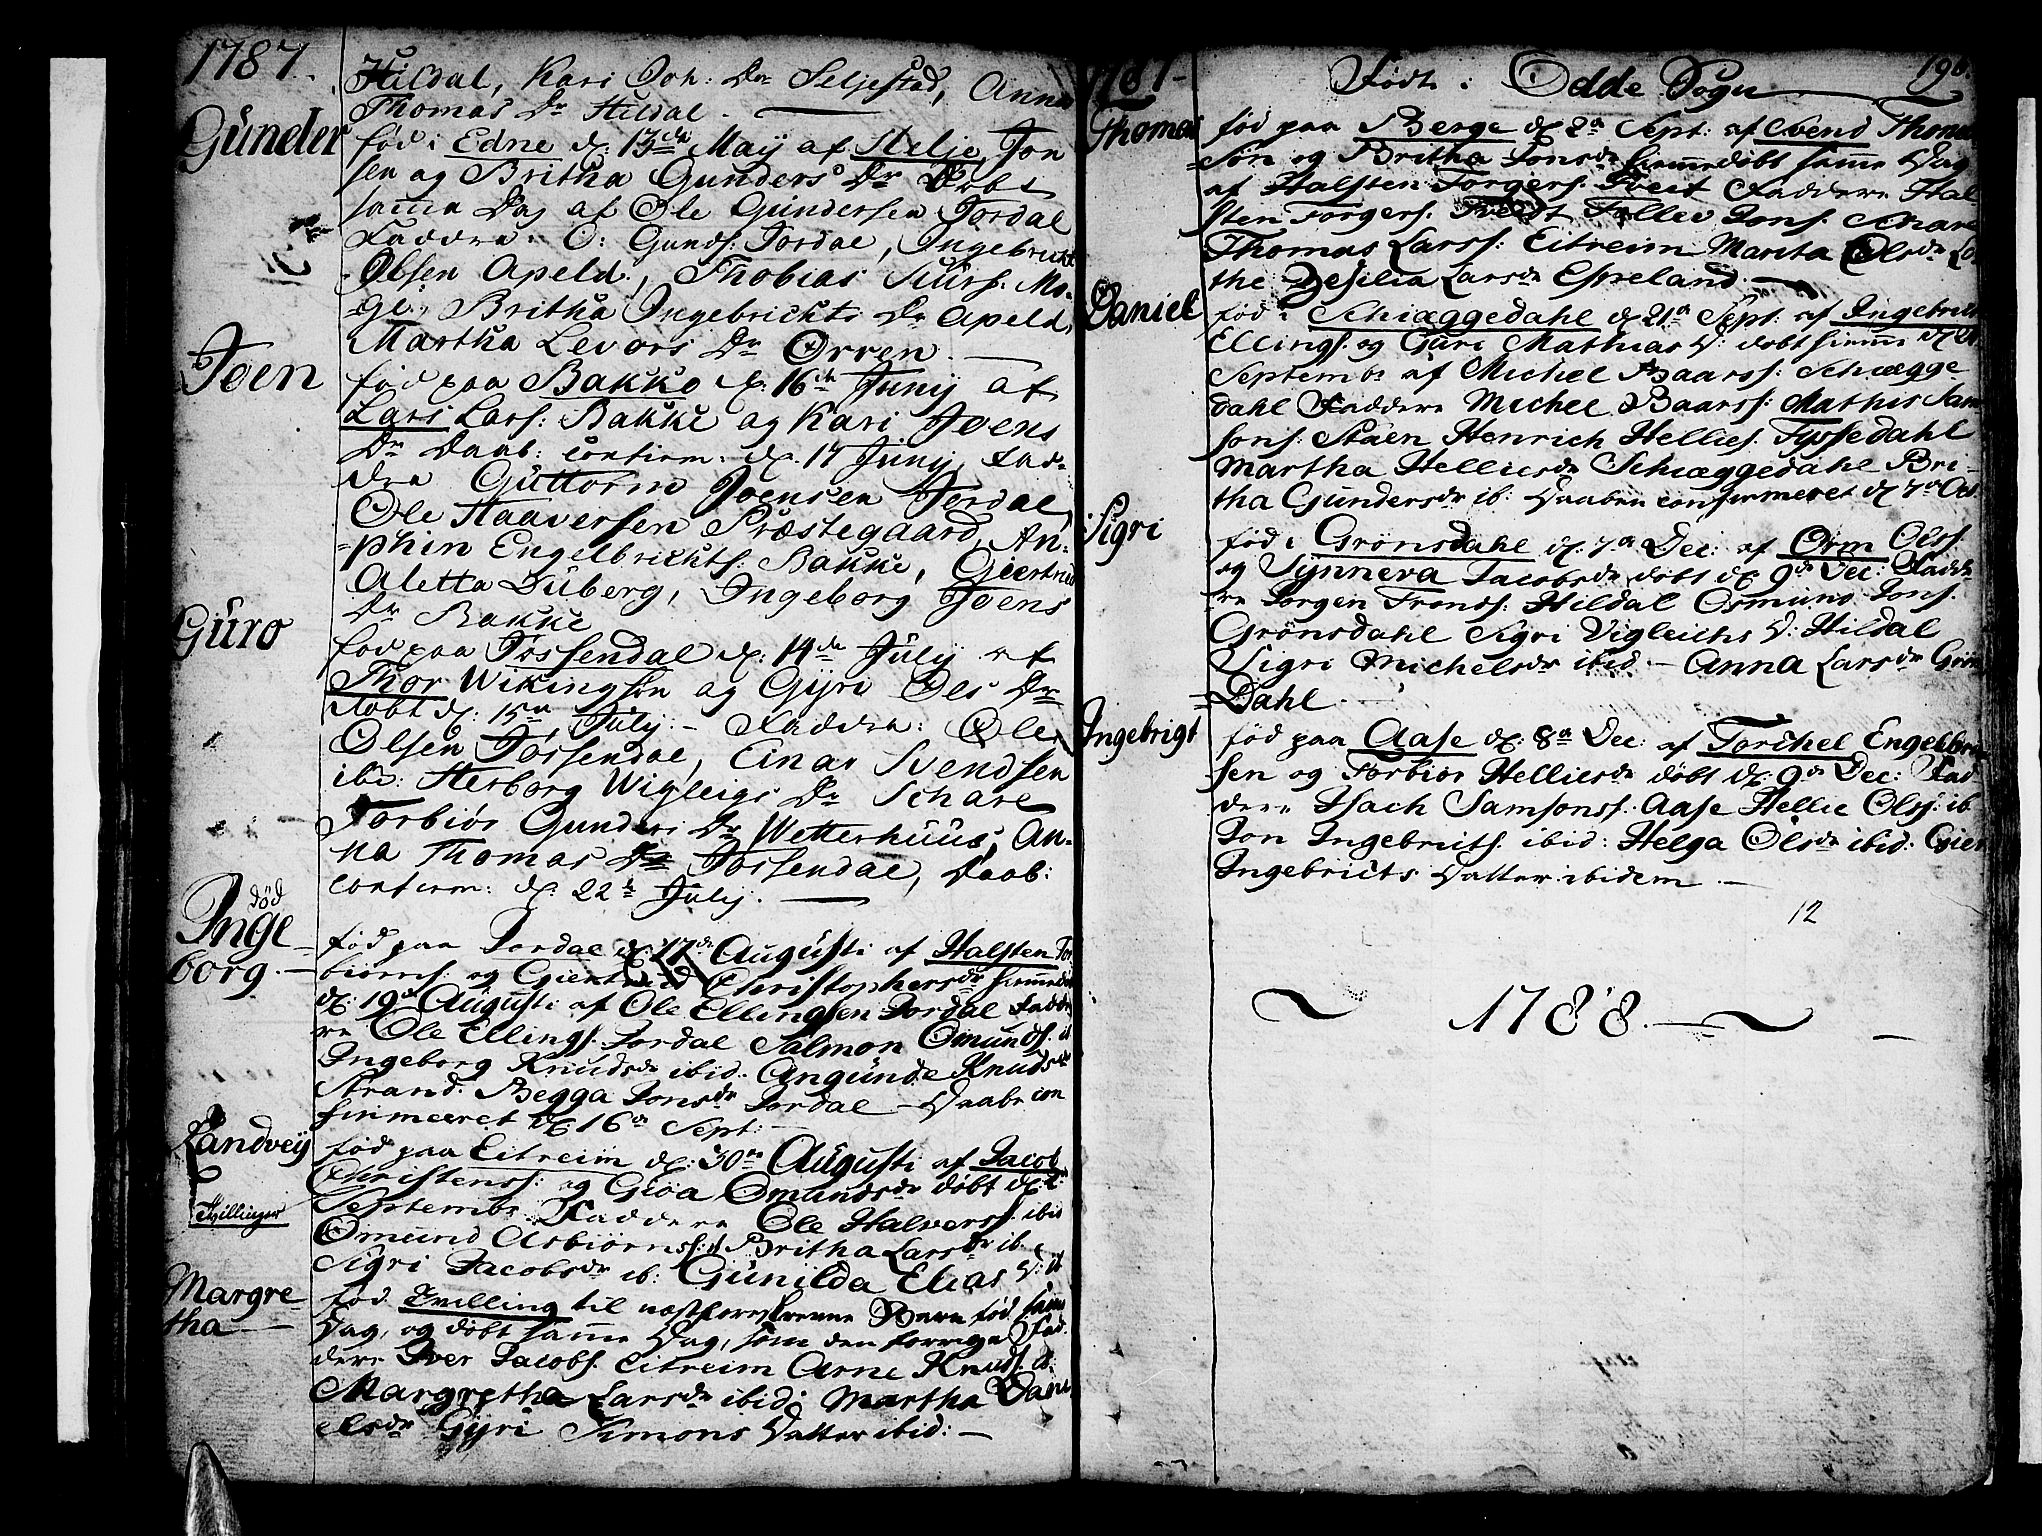 1787.
Hildal, Kari Joh: Dr Seljestad, Anna
Thomas Dr Hildal.
Gunder
fød i Edne d. 13de Maÿ af Helje Jon
sen og Britha Gunders Dr Døbt
samme Dag af Ole Gundersen Jordal
Faddere. O: Gunds: Jordal, Ingebricht
Olsen Apeld:, Thobias Siurs: Mo-
ge, Britha Ingebrichts Dr Apeld,
Martha Levors Dr Ørren.
Joen
fød paa Bakke d. 16de Junÿ af
Lars Lars: Bakke og Kari Joens
Dr Daab: confirm: d. 17 Junÿ, Fad-
dere Guttorm Joensen Jordal,
Ole Haaversen Præstegaard, An-
phin Engelbrichts: Bakke, Giertrud
Aletta Duberg, Ingeborg Joens
Dr Bakke
Guro
fød paa Jøssendal d. 14de Julÿ af
Thor Wikingsøn og Gÿri Ols Dr
døbt d. 15de Julÿ - Faddere: Ole
Olsen Jøssendal, Einar Svendsen
ibd: Herborg Wigleigs Dr Schare
Torbiør Gunders Dr Wetterhuus, An-
na Thomas Dr Jøssendal, Daab:
confirm: d. 22de Julÿ.
død
Inge-
borg.
fød paa Jordal d. 17de Augusti af Halsten Tor-
biørns: og Giertrud Christophersdr hiemmedøbt
d. 19de Augusti af Ole Ellingsen Jordal Fadde
re Ole Ellings. Jordal Salmon Omunds. ib
Ingeborg Knudsdr ibid: Angunde Knudsdr
Strand. Begga Jonsdr Jordal - Daabe con
firmeret d. 16de Sept:
Randveÿ
fød paa Eitreim d. 30te Augusti af Jacob
Christenss: og Gioa Omundsdr døbt d. 2
Septembr Faddere Ole Halverss. ibid
Omund Asbiørnss: Britha Larsdr ib.
Sigri Jacobsdr ib: Gunilda Elias D: ib
Tvillinger
Margre-
tha
fød Tvilling til næstforeskrevne Barn fød samme
Dag, og døbt samme Dag, som den forrige Fad-
dere Iver Jacobs. Eitreim Arne Knuds. ib:
Margretha Larsdr ibid: Martha Dani
elsdr Gÿri Simons Datter ibid:
1787-
Født i Odde Sogn
196.
Thomas
fød paa Berge d. 2de Sept: af Svend Thomas
søn og Britha Jonsdr hiemmedøbt samme Dag
af Halsten Torgers. Tveit Faddere Hal
sten Torgers. Tveidt Tollev Jons. Schare
Thomas Larss: Eitreim Marita Olsdr Lo
the Zesilia Larsdr Espeland
Daniel
fød i Schiæggedahl d. 21de Sept: af Ingebricht
Ellings. og Guri Mathias D: døbt hiemme d. 21
Septembr af Michel Baarss: Schiægge
dahl Faddere Michel Baarss: Mathis Sam
sons: Staen Henrich Hellies. Tyssedahl
Martha Helliesdr Schiæggedahl Bri-
tha Gundersdr ib: Daaben confirmeret d. 7de Oct.
Sigri
fød i Grønsdahl d. 7de Dec: af Orm Olss.
og Sÿnneva Jacobsdr døbt d. 9de Dec: Fadde
re Jørgen Tronds: Hildal Osmund Jons.
Grønsdahl Sigri Vigleichs D: Hildal
Sigri Michelsdr ibid. - Anna Larsdr Grøns
Dahl.
Ingebrigt
fød paa Aase d. 8de Dec: af Torchel Engelbrigt
sen og Torbiør Helliesdr døbt d. 9de Dec: Fad
dere Isach Samsonss. Aase Hellie Olss: ib
Jon Ingebrits. ibid: Helga Olsdr ibid: Gier
Ingebricts Datter ibidem.
12
1788.